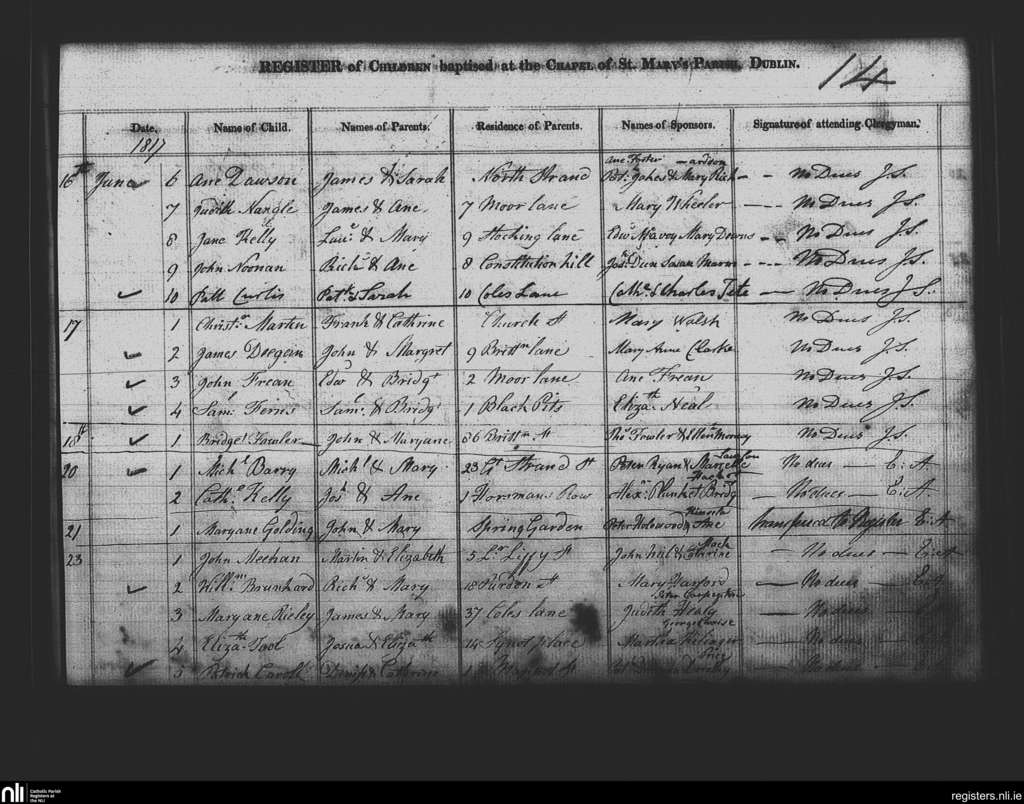 REGISTER of CHILDREN baptised at the CHAPEL of St. MARY'S PARISH, DUBLIN.
14
Date. Name of Child. Names of Parents. Residence of Parents. Names of Sponsors. Signature of attending Clergyman.
1817
Ane Foster —ardson
16th June 6 Ane Dawson James & Sarah North Strand & Mary Rich - - No Dues J.S.
7 Judith Nangle James & Ane 7 Moor lane Mary Wheeler --- No Dues J.S.
8 Jane Kelly Laue & Mary 9 Stocking lane Edwd McAvoy Mary Downs -- No Dues J.S.
9 John Noonan Richd & Ane 8 Constitution hill Susan --- No Dues J.S.
10 Patt Curtis Patk & Sarah 10 Coles Lane Cathe & Charles Tete — No Dues J.S.
17 1 Christr Martin Frank & Cathrine Church St Mary Walsh No Dues J.S.
2 James Deegan John & Margret 9 Brittn lane Mary Anne Clarke No Dues J.S.
3 John Frean Edwd & Bridgt 2 Moor lane Ane Frean No Dues J.S.
4 Saml Ferris Saml & Bridgt 1 Black Pits Elizath Neal No Dues J.S.
18th 1 Bridget Fowler — John & Maryane 86 Brittn St Thos Fowler & Ellen No Dues J.S.
20 1 Michl Barry Michl & Mary 23 Gt Strand St Peter Ryan & No dues — E: A
2 Cathe Kelly Josh & Ane 1 Horsmans Row Alexr Plunket Bridgt — No dues — E: A.
21 1 Maryane Golding John & Mary Spring Garden Peter & Ane transferred to Register E: A
Mack
23 1 John Meehan Martin & Elizabeth 5 Lr Liffy St John & — No dues — E: A
2 Willm Brunhard Richd & Mary 18 Purdon St Mary — No dues —
3 Maryane Rieley James & Mary 37 Coles lane Judith Healy — No dues
4 Elizath Tool Josua & Elizath 14 place Martha — No dues —
5 Patrick Caroll Denis & Cathrine No dues —
nli
Catholic Parish
Registers at
the NLI
registers.nli.ie